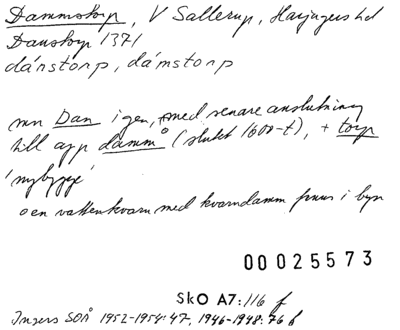 Dammstorp, V Sallerup, Harjagers hd
Danstorp 1371
dánstorp, dámstorp
mn Dan i gen, med senare anslutning
till app damm (slutet 1600-t), + torp
'nybygge'
o en vattenkvarn med kvarndamm finns i byn
00025573
SkO A7:116 f
Ingers SOÅ 1952-1954:47, 1946-1948:76 f